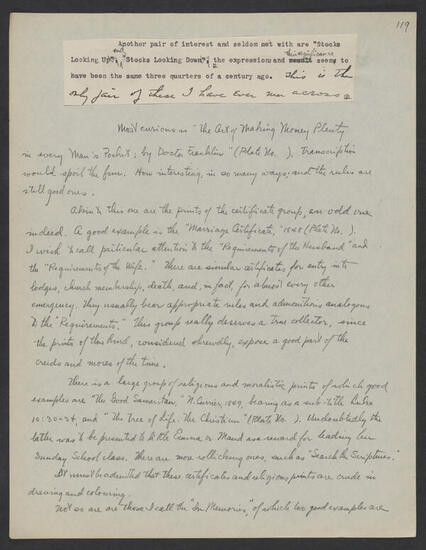 119
Another pair of interest and seldom met with are "Stocks
Looking Up" and "Stocks Looking Down"; the expression and their significance result seem to
have been the same three quarters of a century ago. This is the
only pair of these I have ever run across.
Most curious is "The Art of Making Money Plenty
in every Man's Pocket; by Doctor Franklin" (Plate No. ). Transcription
would spoil the fun. How interesting, in so many ways; and the rules are
still good ones.
Akin to this one are the prints of the certificate group, an odd one
indeed. A good example is the "Marriage Certificate," 1848 (Plate No. ).
I wish to call particular attention to the "Requirements of the Husband" and
the "Requirements of the Wife." There are similar certificates for entry into
lodges, church membership, death and, in fact, for almost every other
emergency. They usually bear appropriate rules and admonitions analogous
to the "Requirements." This group really deserves a true collector, since
the prints of this kind, considered shrewdly, expose a good part of the
creeds and mores of the time.
There is a large group of religious and moralistic prints of which good
examples are "The Good Samaritan," N. Currier, 1849, bearing as a sub-title Luke
10:30-34, and "The Tree of Life. The Christian" (Plate No. ). Undoubtedly the
latter was to be presented to little Emma or Maud as a reward for leading her
Sunday School class. There are more rollicking ones, such as "Search the Scriptures."
It must be admitted that these certificates and religious prints are crude in
drawing and colouring.
Not so are those I call the "In Memories," of which two good examples are